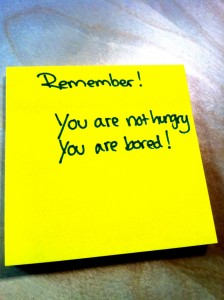 Remember!
You are not hungry
You are bored!